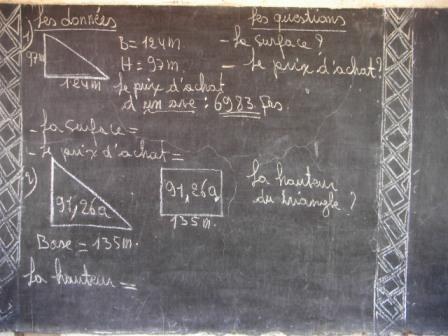 Les données Les questions
1) B = 124m - La surface ?
97m H = 97m. - Le prix d'achat ?
124m Le prix d'achat
d'un are : 6983 frs.
- La surface =
- Le prix d'achat =
2) 91,26a 91,26a La hauteur
135m. du triangle ?
Base = 135m.
La hauteur =